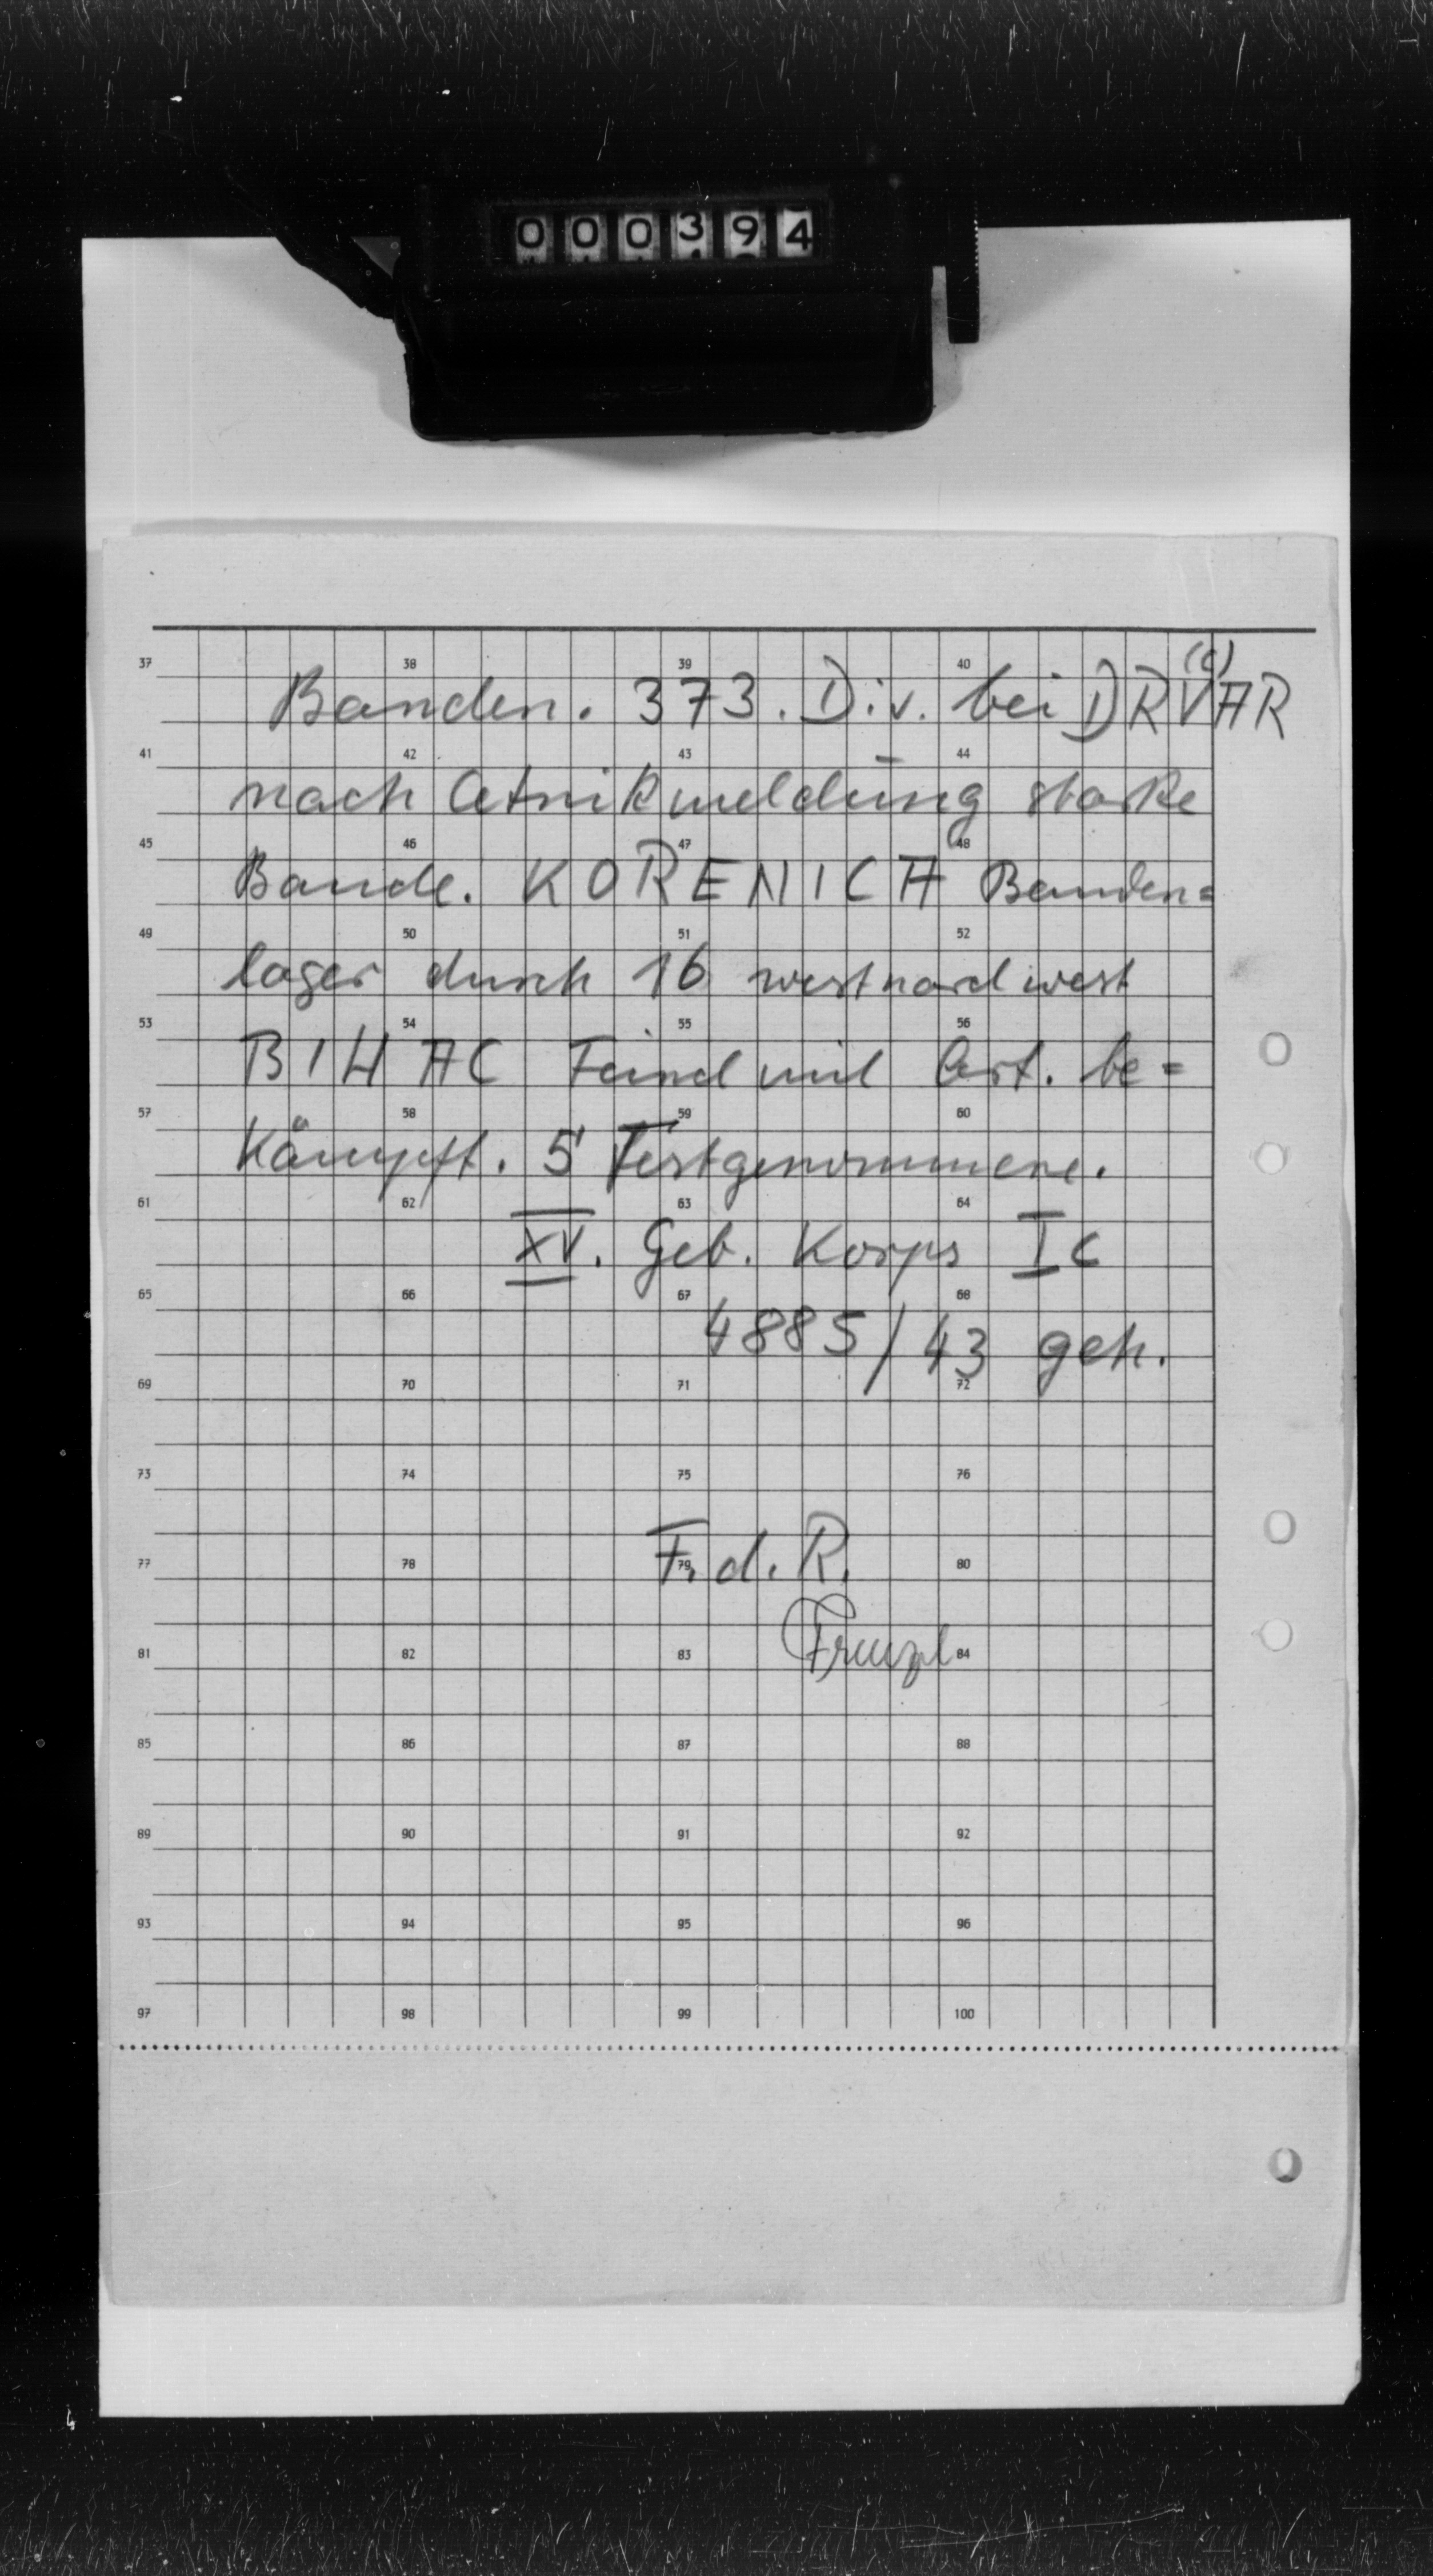 000394
37 38 39 40
(c)
Banden. 373. Div. bei DRVAR
41 42 43 44
nach Cetnikmeldung starke
45 46 47 48
Bande. KORENICA Banden=
49 50 51 52
lager durch 16 westnordwest
53 54 55 56
BIHAC Feind mit Art. be=
57 58 59 60
kämpft. 5 Festgenommene.
61 62 63 64
XV. Geb. Korps Ic
65 66 67 68
4885/43 geh.
69 70 71 72
73 74 75 76
F. d. R.
77 78 79 80
81 82 83 84
85 86 87 88
89 90 91 92
93 94 95 96
97 98 99 100